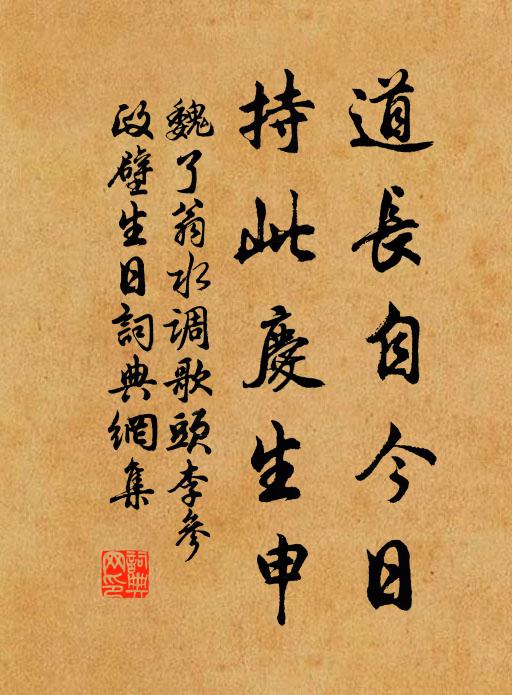 道長自今日
持此慶生申
魏了翁水调歌頭李參
政壁生日詞典網集
詞典網印